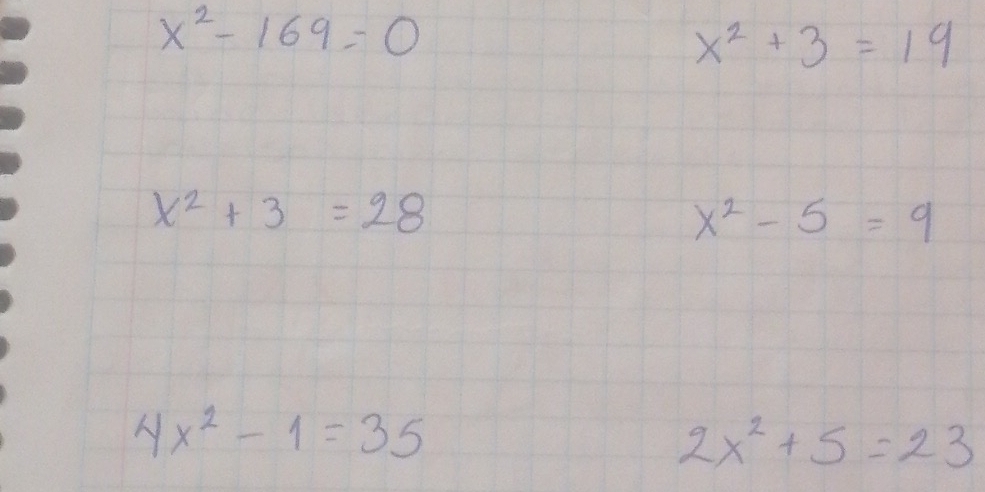 x² - 169 = 0
x² + 3 = 19
x² + 3 = 28
x² - 5 = 9
4x² - 1 = 35
2x² + 5 = 23